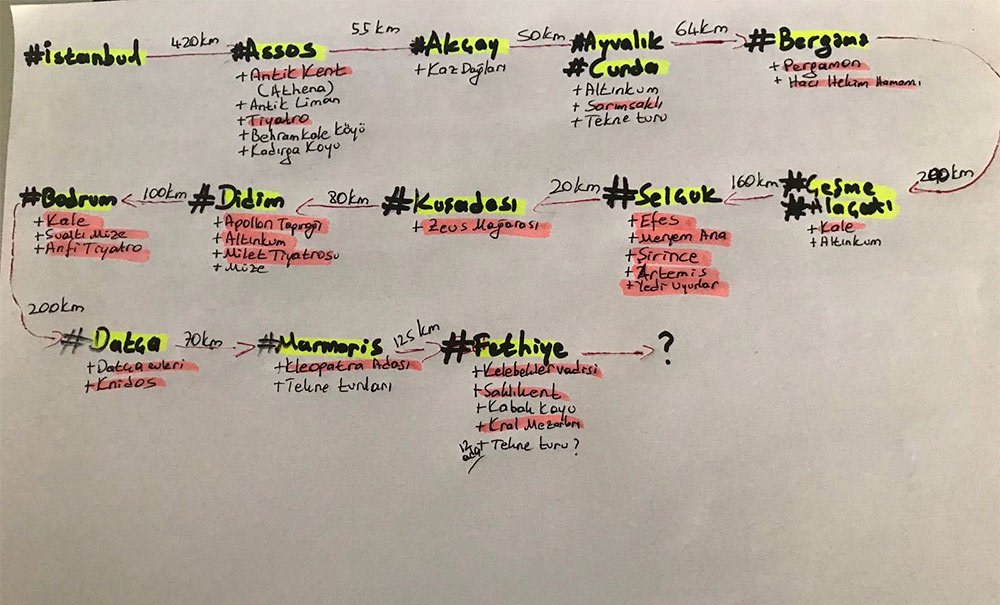 #istanbul 420km #Assos 55km #Akçay 50km #Ayvalık 64km #Bergama
#Cunda
+Antik Kent
(Athena)
+Antik Liman
+Tiyatro
+Behramkale köyü
+Kadırga Koyu
+Kaz Dağları
+Altınkum
+Sarımsaklı
+Tekne turu
+Pergamon
+Hacı Hekim Hamamı
200km
#Çeşme 160km #Selçuk 20km #Kuşadası 80km #Didim 100km #Bodrum
#Alaçatı
+Kale
+Altınkum
+Efes
+Meryem Ana
+Şirince
+Artemis
+Yedi Uyurlar
+Zeus Mağarası
+Apollon Tapınağı
+Altınkum
+Milet Tiyatrosu
+Müze
+Kale
+Sualtı Müze
+Anfi Tiyatro
200km
#Datça 70km #Marmaris 125km #Fethiye ?
+Datça evleri
+Knidos
+Kleopatra Adası
+Tekne turları
+Kelebekler vadisi
+Saklıkent
+Kabak Koyu
+Kral Mezarları
12 ada + Tekne turu?